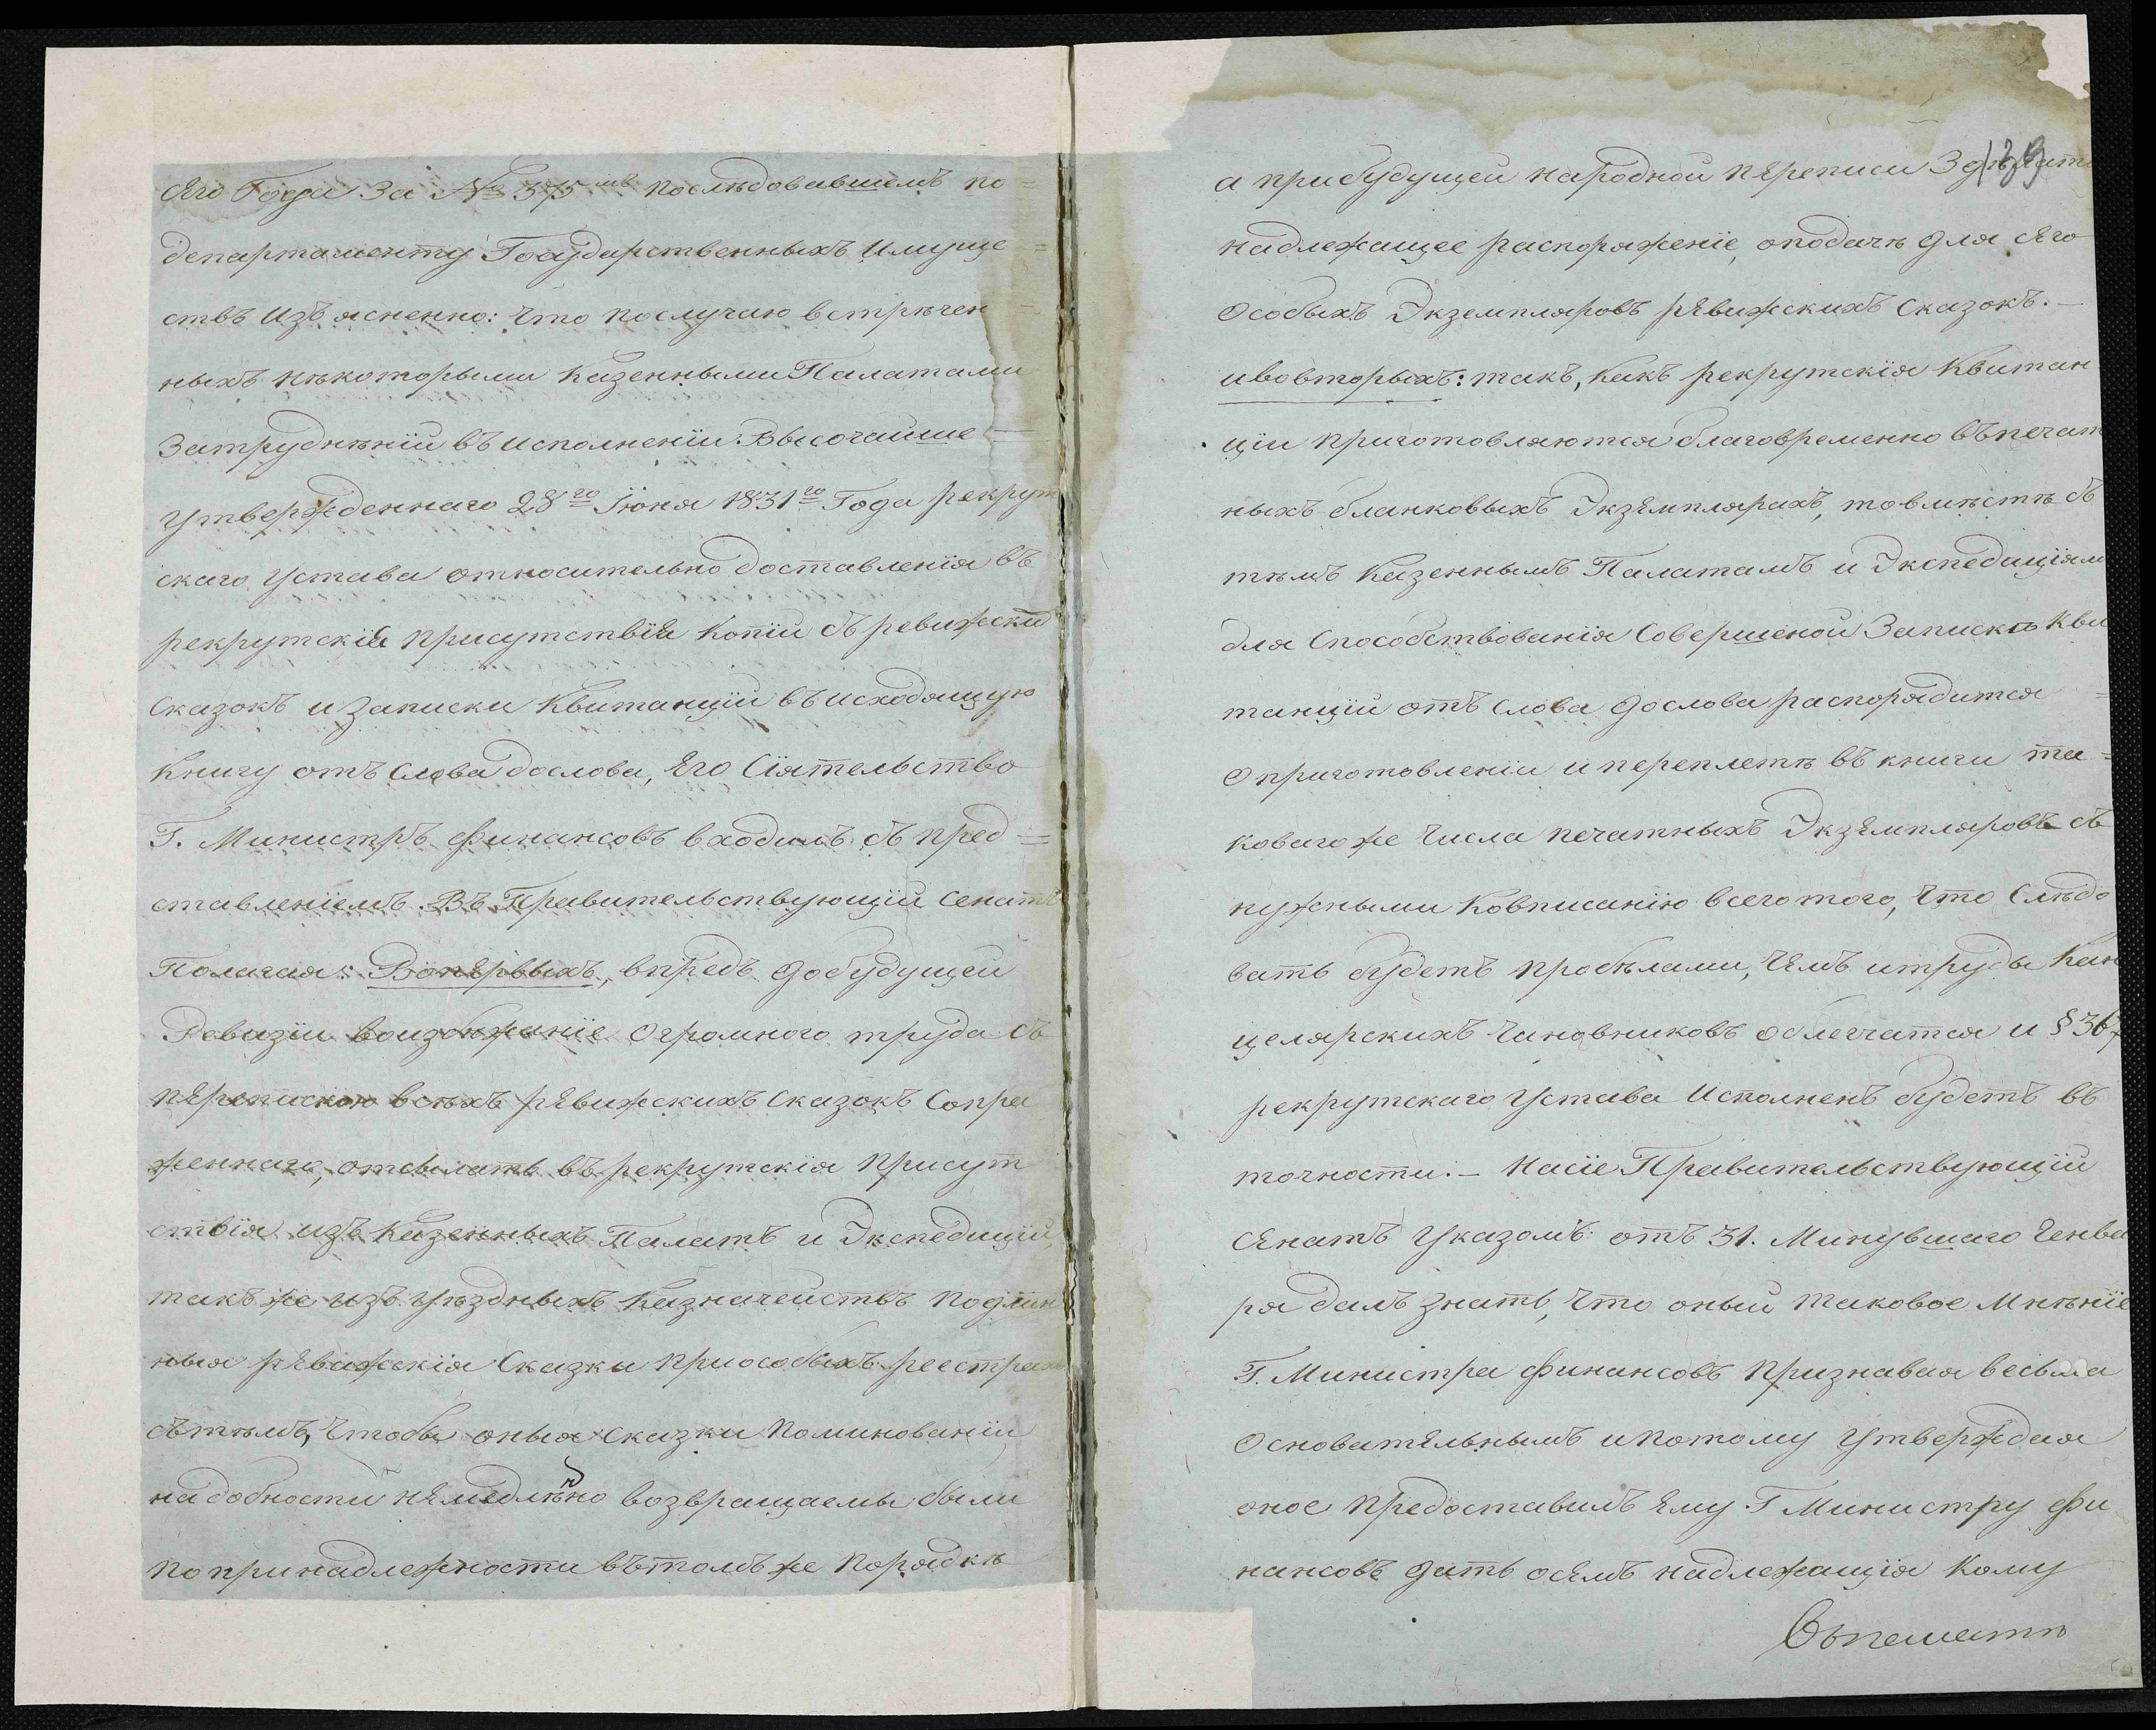 сего Года за № 375<sup>мъ</sup> послѣдовавшемъ по=
департаменту Государственныхъ Имуще=
ствъ Изъясненно: Что послучаю встрѣчен
ныхъ нѣкоторыми Казенными Палатами
Затрудненій въ исполненіи Высочайше=
утвержденнаго 28<sup>го</sup> Іюня 1831<sup>го</sup> Года рекрут
скаго Устава относительно доставленія въ
рекрутскія присутствія Копіи съ ревижских
сказокъ и записки Квитанцій въ исходящую
Книгу отъ Слова дослова, Его Сіятельство
Г. Министръ Финансовъ входилъ съ пред=
ставленіемъ Въ Правительствующій Сенатъ
Полагая: Вопервыхъ, впредь до будущей
Ревизіи воизбѣжаніе огромного труда съ
перепискою всѣхъ ревижскихъ сказокъ Сопря
женнаго, отсылать въ рекрутскія присут
ствія изъ Казенныхъ Палатъ и Экспедицій,
такъ же изъ уѣздныхъ Казначействъ подлин
ныя ревижскія Сказки приособыхъ реестрах
сътѣмъ, Чтобы оныя сказки поминованіи
надобности немедлѣнно возвращаемы были
по принадлежности вътомъ же порядкѣ
129
а прибудущей народной переписи Здѣлать
надлежащее распоряженіе, оподачѣ для сего
особыхъ Экземпляровъ ревижскихъ сказокъ.—
ивовторыхъ: такъ, какъ рекрутскія Квитан
ціи приготовляются благовременно въпечат
ныхъ бланковыхъ Экземплярахъ, товмѣстѣ съ
тѣмъ Казеннымъ Палатамъ и Экспедиціям
для Способствованія Совершеной Запискѣ Кви
танцій отъ Слова дослова распорядится=
О приготовленіи и переплетѣ въ книги та=
коваго же Числа печатныхъ Экземпляровъ съ
нужными Ковписанію всего того, Что Слѣдо
вать будетъ пробѣлами, Чемъ итруды Кан
целярскихъ Чиновниковъ облегчатся и § 367
рекрутскаго Устава Исполненъ будетъ въ
точности.— Насіе Правительствующій
Сенатъ Указомъ отъ 31. Минувшаго Генва
ря далъ знать, Что оный таковое мнѣніе
Г. Министра Финансовъ признавая весьма
Основательнымъ и потому Утверждая
оное предоставилъ ему Г Министру Фи
нансовъ дать осемъ надлежащія Кому